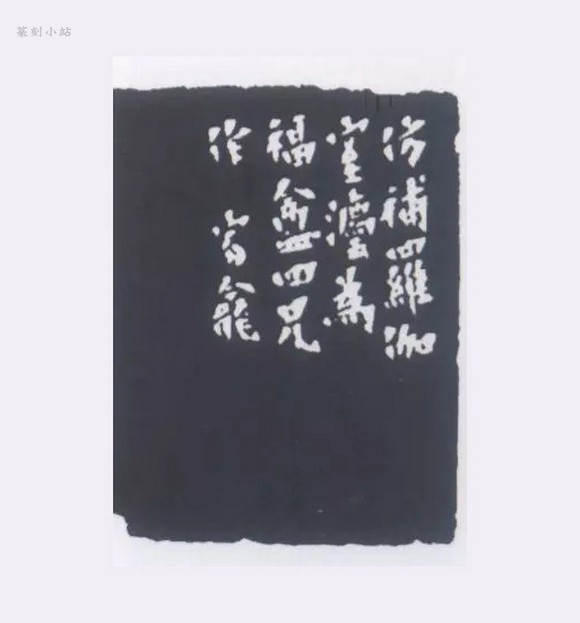 篆刻小站
仿補羅迦
室灋為
福盦四兄
作 窳龕